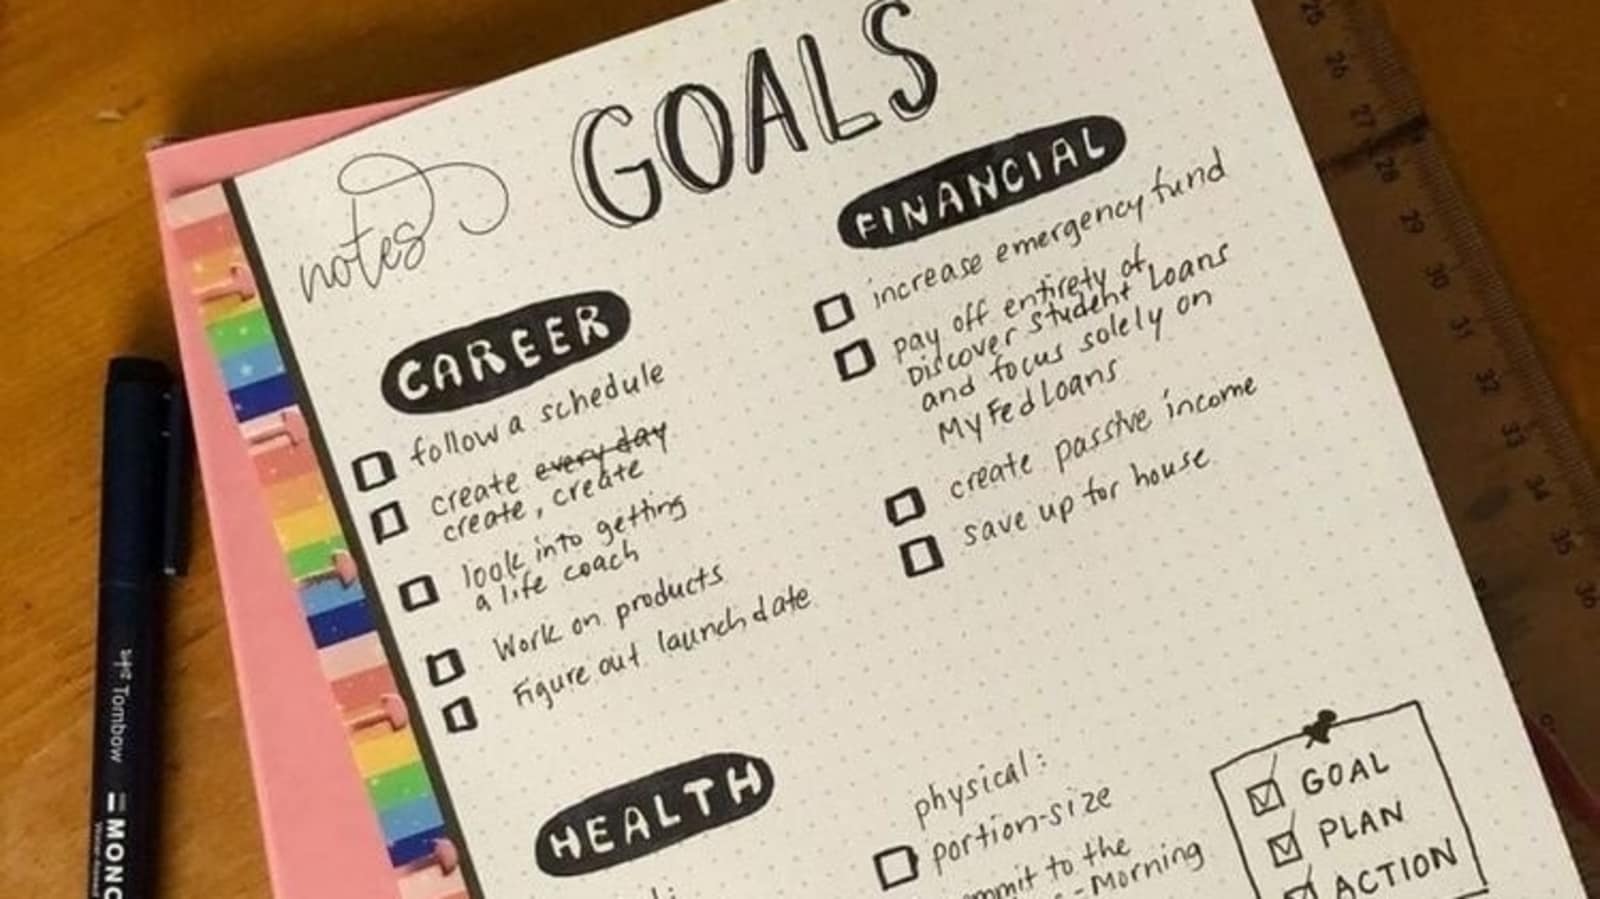 GOALS
notes
CAREER
follow a schedule
create every day
create, create
look into getting
a life coach
Work on products
Figure out launch date
FINANCIAL
increase emergency fund
pay off entirety of
Discover Student Loans
and focus solely on
MyFedLoans
create passive income
save up for house
HEALTH
physical:
portion-size
to the
-Morning
GOAL
PLAN
ACTION
Tombow
MONO
25
26
27
28
29
30
31
32
33
34
35
36